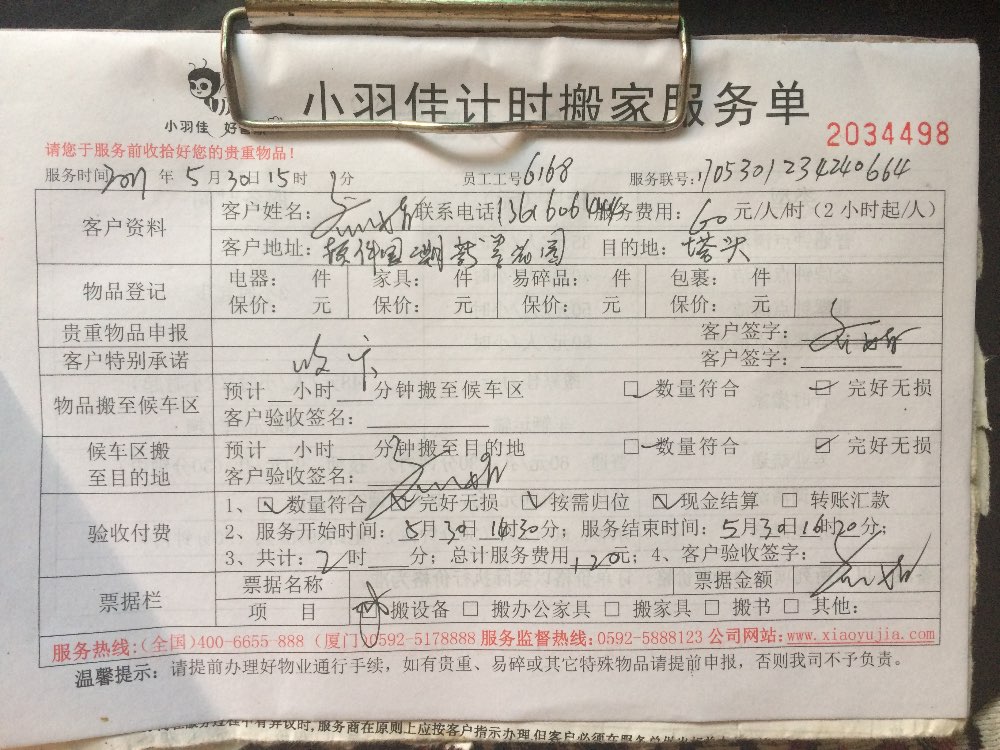 小羽佳计时搬家服务单
小羽佳
2034498
请您于服务前收拾好您的贵重物品！
服务时间 2017 年 5 月 30 日 15 时 分 员工工号 6168 服务联号: 1705301234240664
客户资料 客户姓名: 联系电话 服务费用: 60 元/人/时（2小时起/人）
客户地址: 目的地: 塔头
物品登记 电器: 件 家具: 件 易碎品: 件 包裹: 件
保价: 元 保价: 元 保价: 元 保价: 元
贵重物品申报 客户签字:
客户特别承诺 客户签字:
物品搬至候车区 预计__小时__分钟搬至候车区 □数量符合 □完好无损
客户验收签名:
候车区搬至目的地 预计__小时__分钟搬至目的地 □数量符合 ☑完好无损
客户验收签名:
验收付费 1、☑数量符合 ☑完好无损 ☑按需归位 ☑现金结算 □转账汇款
2、服务开始时间: 5月30日14时30分; 服务结束时间: 5月30日16时20分;
3、共计: 2时 分; 总计服务费用 120元; 4、客户验收签字:
票据栏 票据名称 票据金额
项 目 □搬设备 □搬办公家具 □搬家具 □搬书 □其他:
服务热线:(全国)400-6655-888 (厦门)0592-5178888 服务监督热线:0592-5888123 公司网站:www.xiaoyujia.com
温馨提示: 请提前办理好物业通行手续，如有贵重、易碎或其它特殊物品请提前申报，否则我司不予负责。
有异议时,服务商在原则上应按客户指示办理,但客户必须在服务单